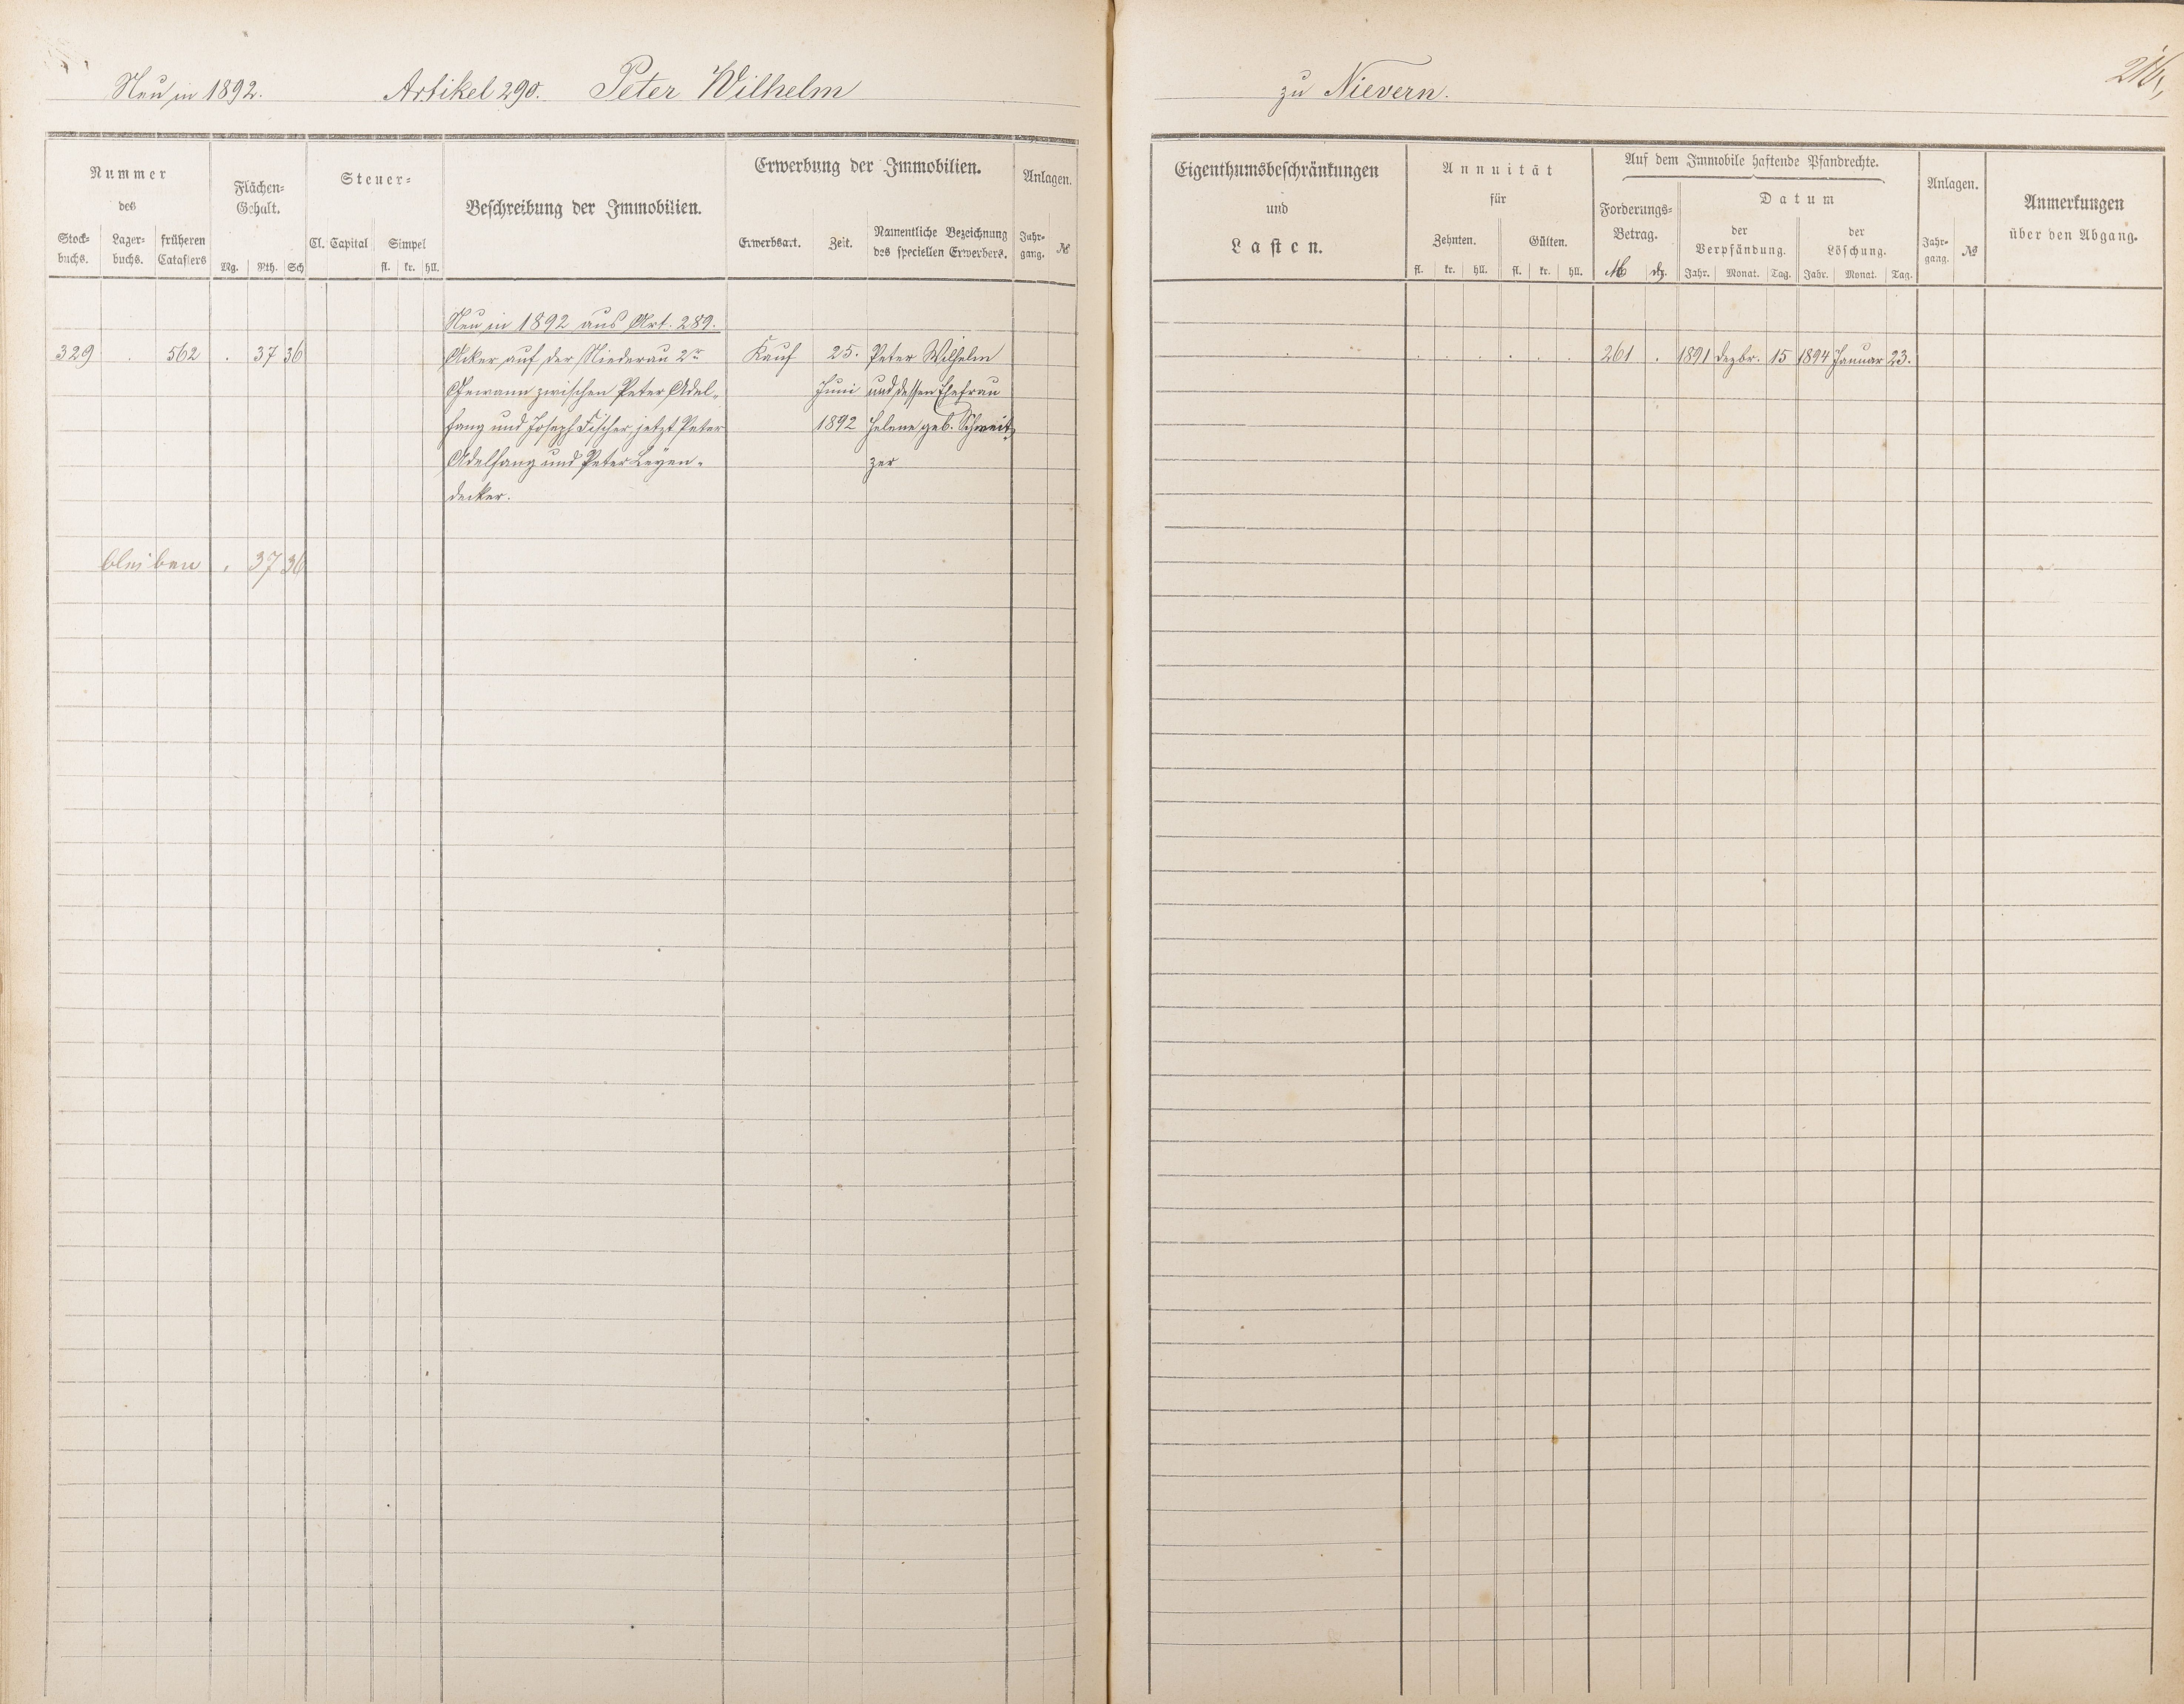 Neu in 1892. Artikel 290. Peter Wilhelm
Nummer
des
Stock-
buchs.
Lager-
buchs.
früheren
Catasters
Flächen-
Gehalt.
Mg. Rth. Sch
Steuer-
Cl. Capital Simpel
fl. kr. hll.
Beschreibung der Immobilien.
Erwerbung der Immobilien.
Erwerbsart. Zeit.
Namentliche Bezeichnung
des speciellen Erwerbers.
Anlagen.
Jahr-
gang.
№
Neu in 1892 aus Art. 289.
329 . 562 . 37 36 Acker auf der Niederau 2r Kauf 25. Peter Wilhelm
Gewann zwischen Peter Adel- Juni und dessen Ehefrau
fang und Joseph Fischer, jetzt Peter 1892 Helene geb. Schweit-
Adelfang und Peter Leyen- zer
decker.
bleiben . 37 36
zu Nievern.
Eigenthumsbeschränkungen
und
Lasten.
Annuität
für
Zehnten. Gülten.
fl. kr. hll. fl. kr. hll.
Auf dem Immobile haftende Pfandrechte.
Forderungs-
Betrag.
M
Datum
der
Verpfändung.
Jahr. Monat. Tag.
der
Löschung.
Jahr. Monat. Tag.
Anlagen.
Jahr-
gang.
№
Anmerkungen
über den Abgang.
. . . . . . . 261 . 1891 Dezbr. 15 1894 Januar 23.